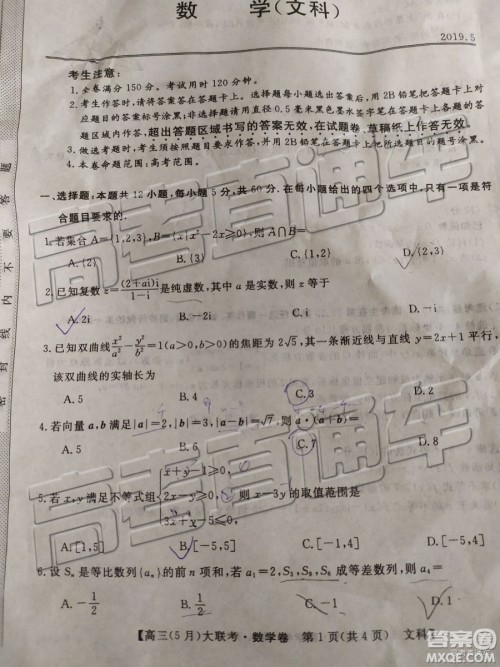 数 学(文科)
2019.5
考生注意:
1.全卷满分 150 分。考试用时 120 分钟。
2.考生作答时,请将答案答在答题卡上。选择题每小题选出答案后,用 2B 铅笔把答题卡上对
应题目的答案标号涂黑,非选择题请用直径 0.5 毫米黑色墨水签字笔在答题卡上各题的答
题区域内作答,超出答题区域书写的答案无效,在试题卷、草稿纸上作答无效。
3.做选考题时,考生须按照题目要求作答,并用 2B 铅笔在答题卡上把所选题目的题号涂黑。
4.本卷命题范围:高考范围。
一、选择题:本题共 12 小题,每小题 5 分,共 60 分。在每小题给出的四个选项中,只有一项是符
合题目要求的。
1.若集合 A={1,2,3},B={x|x²-2x≥0},则 A∩B=
A.{2} B.{3} C.{1,2} D.{2,3}
2.已知复数 z=(2+ai)i/1-i 是纯虚数,其中 a 是实数,则 z 等于
A.2i B.-2i C.i D.-i
3.已知双曲线 x²/a²-y²/b²=1(a>0,b>0)的焦距为 2√5,其一条渐近线与直线 y=2x+1 平行,
该双曲线的实轴长为
A.5 B.4 C.3 D.2
4.若向量 a,b 满足|a|=2,|b|=3,|a-b|=√7,则 a·(a+b)=
A.5 B.6 C.7 D.8
5.若 x,y 满足不等式组{x+y-1≥0, 2x-y≥0, 3x+x-5≤0, 则 x-3y 的取值范围是
A.[1,5] B.[-5,5] C.[-1,4] D.[-5,1]
6.设 Sₙ 是等比数列{aₙ}的前 n 项和,若 a₃=2,S₅,S₄,S₆成等差数列,则 a₁=
A.-1/2 B.1/2 C.-1 D.1
【高三(5 月)大联考·数学卷 第 1 页(共 4 页) 文科】
高考直通车
高考直通车
题
答
要
不
内
线
封
密